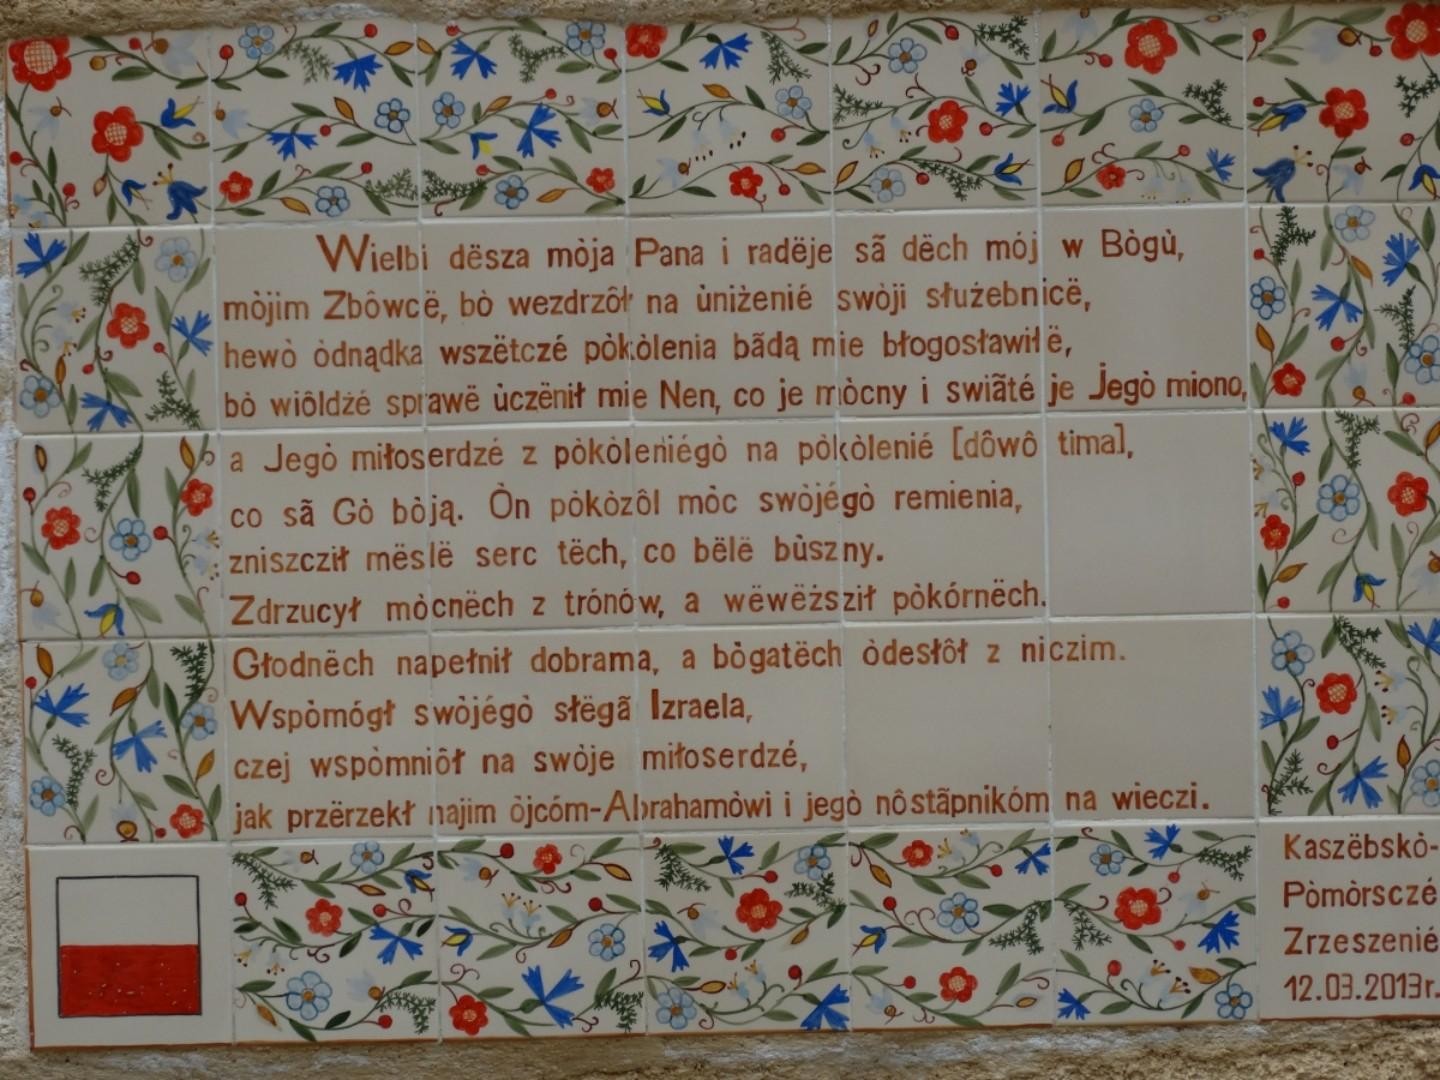 Wielbi dësza mòja Pana i radëje sã dëch mój w Bògù,
mòjim Zbôwcë, bò wezdrzôł na ùniżenié swòji służebnicë,
hewò òdnądka wszëtczé pòkòlenia bãdą mie błogosławiłë,
bò wiôldżé sprawë ùczënił mie Nen, co je mòcny i swiãté je Jegò miono,
a Jegò miłoserdzé z pòkòleniégò na pòkòlenié [dôwô tima],
co sã Gò bòją. Òn pòkòzôl mòc swòjégò remienia,
zniszcził mëslë serc tëch, co bëlë bùszny.
Zdrzucył mòcnëch z trónów, a wëwëższił pòkórnëch.
Głodnëch napełnił dobrama, a bògatëch òdesłôł z niczim.
Wspòmógł swòjégò słëgã Izraela,
czej wspòmniôł na swòje miłoserdzé,
jak przërzekł najim òjcóm-Abrahamòwi i jegò nôstãpnikóm na wieczi.
Kaszëbskò-
Pòmòrsczé
Zrzeszenié
12.03.2013r.